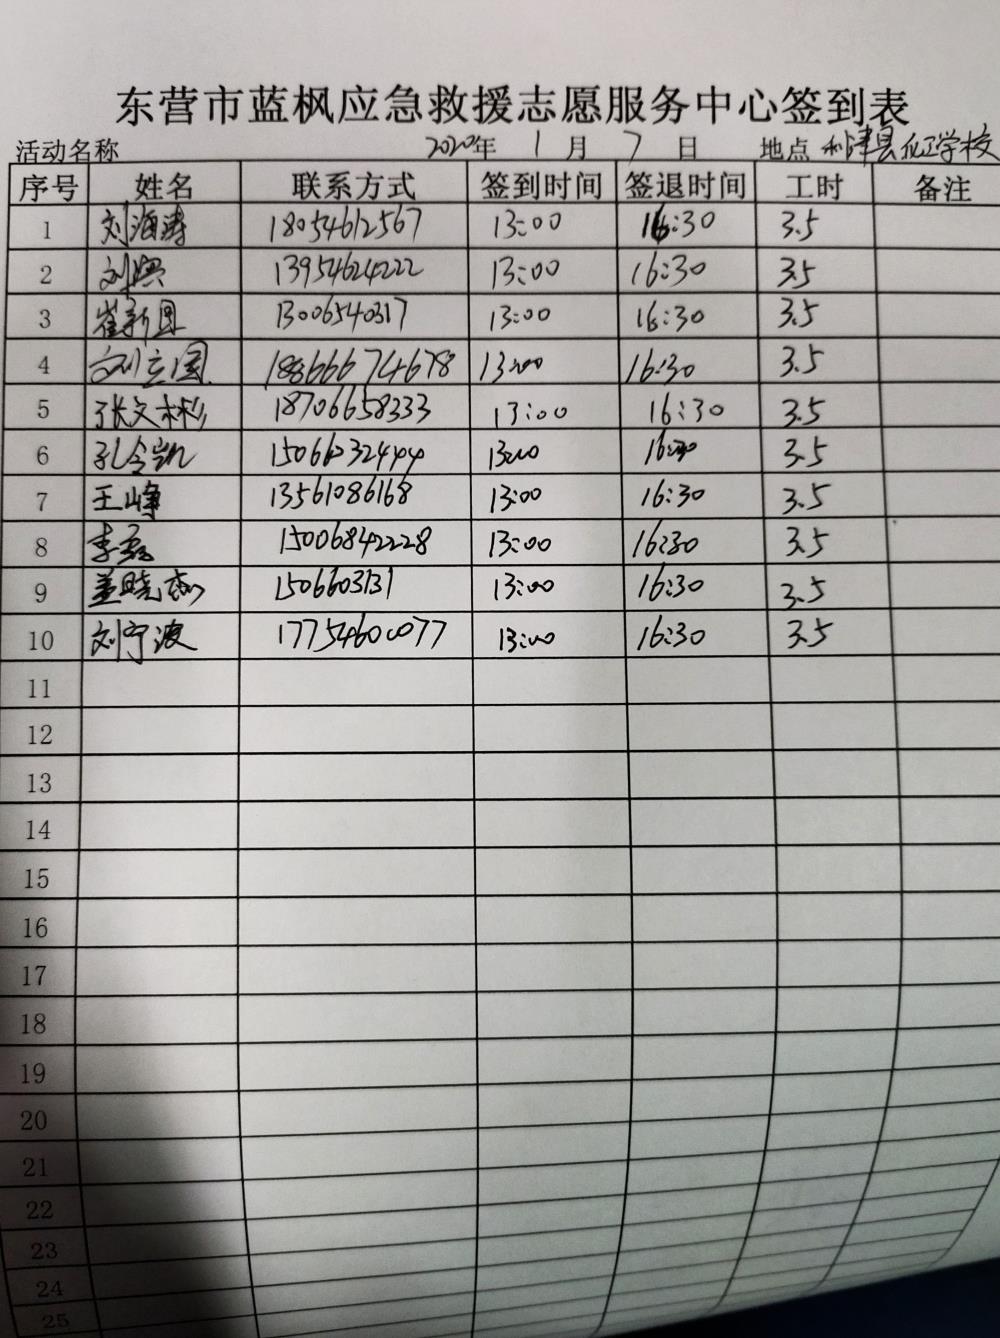 东营市蓝枫应急救援志愿服务中心签到表
活动名称 2020年 1月 7日 地点 利津县化工学校
序号 姓名 联系方式 签到时间 签退时间 工时 备注
1 刘海涛 18054612567 13:00 16:30 3.5
2 刘 13954624222 13:00 16:30 3.5
3 崔新国 13006540317 13:00 16:30 3.5
4 刘立国 188666674678 13:00 16:30 3.5
5 张文彬 18706658333 13:00 16:30 3.5
6 孔令凯 15066232444 13:00 16:30 3.5
7 王峰 13561086168 13:00 16:30 3.5
8 李磊 15006842228 13:00 16:30 3.5
9 盖晓 1506603131 13:00 16:30 3.5
10 刘宁波 17754600077 13:00 16:30 3.5
11
12
13
14
15
16
17
18
19
20
21
22
23
24
25